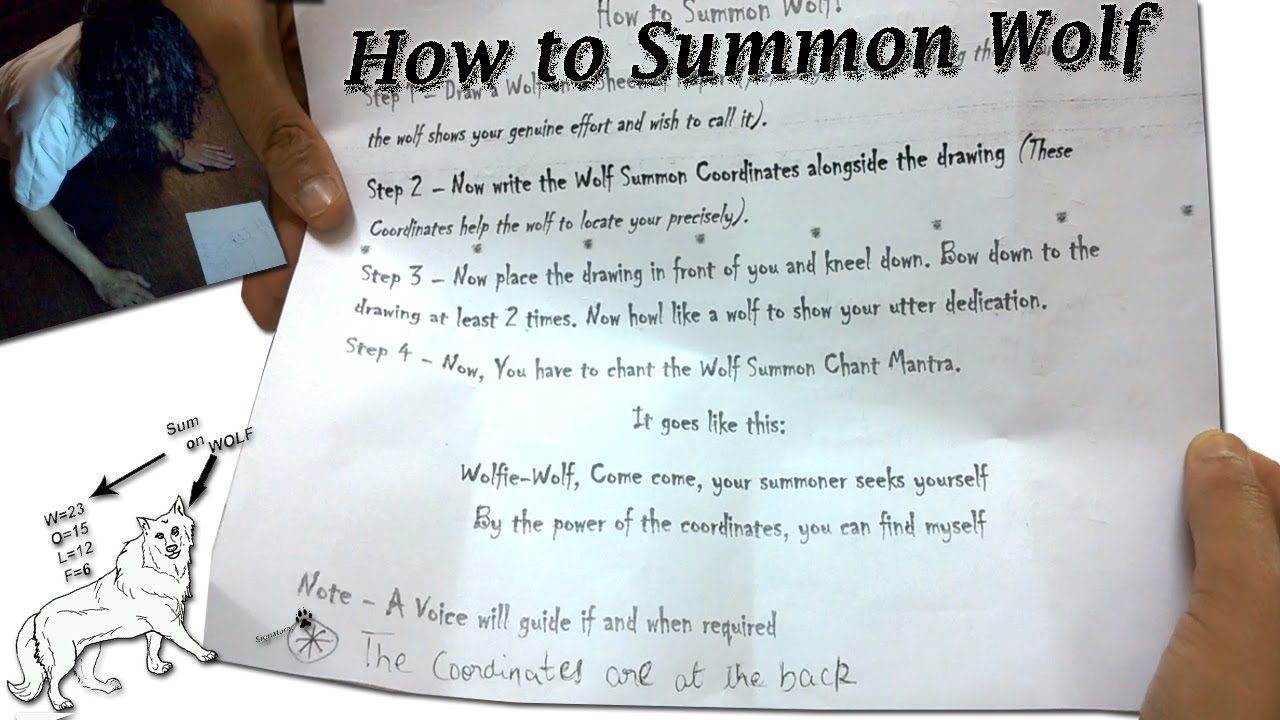 How to Summon Wolf!
How to Summon Wolf
Step 1 – Draw a Wolf
the wolf shows your genuine effort and wish to call it).
Step 2 – Now write the Wolf Summon Coordinates alongside the drawing (These
Coordinates help the wolf to locate your precisely).
Step 3 – Now place the drawing in front of you and kneel down. Bow down to the
drawing at least 2 times. Now howl like a wolf to show your utter dedication.
Step 4 – Now, You have to chant the Wolf Summon Chant Mantra.
It goes like this:
Wolfie-Wolf, Come come, your summoner seeks yourself
By the power of the coordinates, you can find myself
Note – A Voice will guide if and when required
The Coordinates are at the back
Signature
Sum
on WOLF
W=23
O=15
L=12
F=6